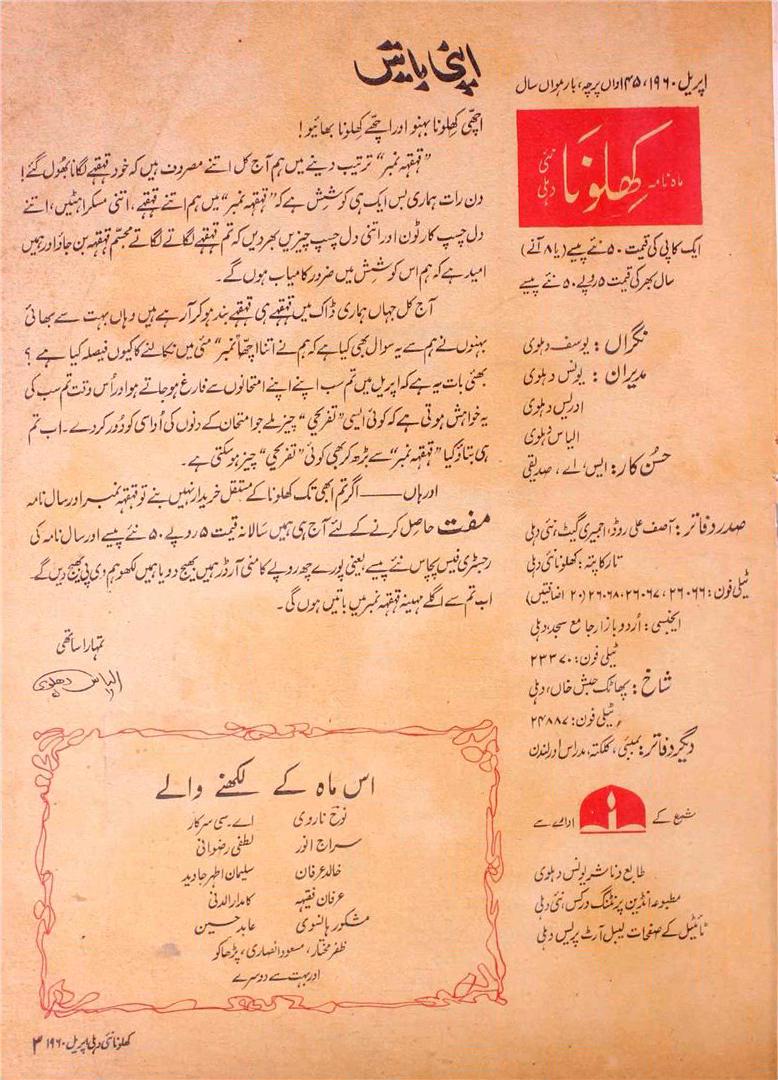 اپریل ۱۹۶۰، ۱۴۵واں پرچہ، بارہواں سال
ماہ نامہ کھلونَا نئی دہلی
ایک کاپی کی قیمت ۵۰ نئے پیسے (یا ۸ آنے)
سال بھر کی قیمت ۵ روپے ۵۰ نئے پیسے
نگراں: یوسف دہلوی
مدیران: یونس دہلوی
ادریس دہلوی
الیاس دہلوی
حسن کار: ایس، اے، صدیقی
صدر دفاتر: آصف علی روڈ، اجمیری گیٹ، نئی دہلی
تار کا پتہ: کھلونا نئی دہلی
ٹیلی فون: ۲۶۰۶۶، ۲۶۰۶۷، ۲۶۰۶۸ (۲۰ اضافتیں)
ایجنسی: اُردو بازار جامع مسجد، دہلی
ٹیلی فون: ۲۳۳۷۰
شاخ: پھاٹک حبش خاں، دہلی
ٹیلی فون: ۲۴۸۸۷
دیگر دفاتر: بمبئی، کلکتہ، مدراس اور لندن
شمع کے ادارے سے
طابع و ناشر یونس دہلوی
مطبوعہ انڈین پرنٹنگ ورکس، نئی دہلی
ٹائیٹل کے صفحات لیبل آرٹ پریس دہلی
اپنی باتیں
اچھّی کھلونا بہنو اور اچھّے کھلونا بھائیو!
”قہقہہ نمبر“ ترتیب دینے میں ہم آج کل اتنے مصروف ہیں کہ خود قہقہے لگانا بھُول گئے!
دن رات ہماری بس ایک ہی کوشش ہے کہ ”قہقہہ نمبر“ میں ہم اتنے قہقہے، اتنی مسکراہٹیں، اتنے
دل چسپ کارٹون اور اتنی دل چسپ چیزیں بھر دیں کہ تم قہقہے لگاتے لگاتے مجسّم قہقہہ بن جاؤ اور ہمیں
امید ہے کہ ہم اس کوشش میں ضرور کامیاب ہوں گے۔
آج کل جہاں ہماری ڈاک میں قہقہے ہی قہقہے بند ہو کر آ رہے ہیں وہاں بہت سے بھائی
بہنوں نے ہم سے یہ سوال بھی کیا ہے کہ ہم نے اتنا اچھّا نمبر“ مئی میں نکالنے کا کیوں فیصلہ کیا ہے؟
بھئی بات یہ ہے کہ اپریل میں تم سب اپنے اپنے امتحانوں سے فارغ ہو جاتے ہو اور اُس وقت تم سب کی
یہ خواہش ہوتی ہے کہ کوئی ایسی ”تفریحی“ چیز ملے جو امتحان کے دنوں کی اُداسی کو دُور کر دے۔ اب تم
ہی بتاؤ کیا ”قہقہہ نمبر“ سے بڑھ کر بھی کوئی ”تفریحی“ چیز ہو سکتی ہے۔
اور ہاں —— اگر تم ابھی تک کھلونا کے مستقل خریدار نہیں بنے تو قہقہہ نمبر اور سال نامہ
مفت حاصل کرنے کے لئے آج ہی ہمیں سالانہ قیمت ۵ روپے ۵۰ نئے پیسے اور سال نامہ کی
رجسٹری فیس پچاس نئے پیسے، یعنی پورے چھ روپے کا منی آرڈر ہمیں بھیج دو یا ہمیں لکھو ہم وی پی بھیج دیں گے۔
اب تم سے اگلے مہینہ قہقہہ نمبر میں باتیں ہوں گی۔
تمہارا ساتھی
الیاس دہلوی
اس ماہ کے لکھنے والے
نوح ناروی اے۔سی سرکار
سراج انور لطفی رضوانی
خالد عرفان سلیمان اطہر جاوید
عرفان فقیہہ کامدار الدنی
مشکور ہانسوی عابد حسین
ظفر مختار، مسعود انصاری، پڑھاکو
اور بہت سے دوسرے
کھلونا نئی دہلی اپریل ۱۹۶۰ ۳